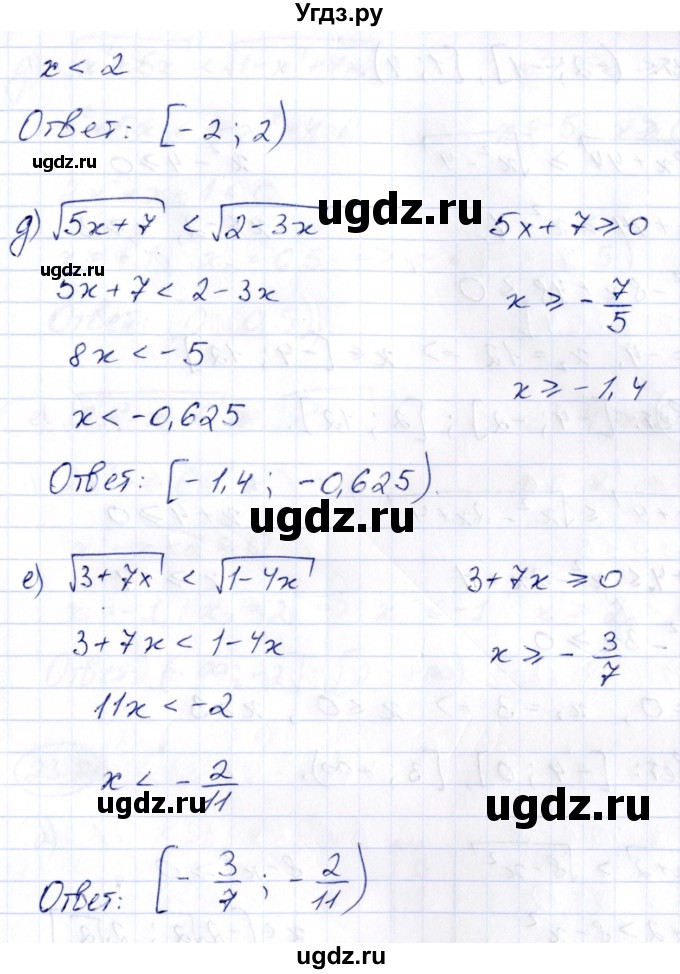 Угдз.ру
x < 2
Ответ: [-2; 2)
ugdz.ru
ugdz.ru
д) √(5x+7) < √(2-3x) 5x+7 ≥ 0
ugdz.ru
5x+7 < 2-3x x ≥ -7/5
8x < -5
x ≥ -1,4
x < -0,625
Ответ: [-1,4; -0,625).
ugdz.ru
е) √(3+7x) < √(1-4x) 3+7x ≥ 0
3+7x < 1-4x x ≥ -3/7
11x < -2
x < -2/11
ugdz.ru
ugdz.ru
Ответ: [-3/7; -2/11)
ugdz.ru